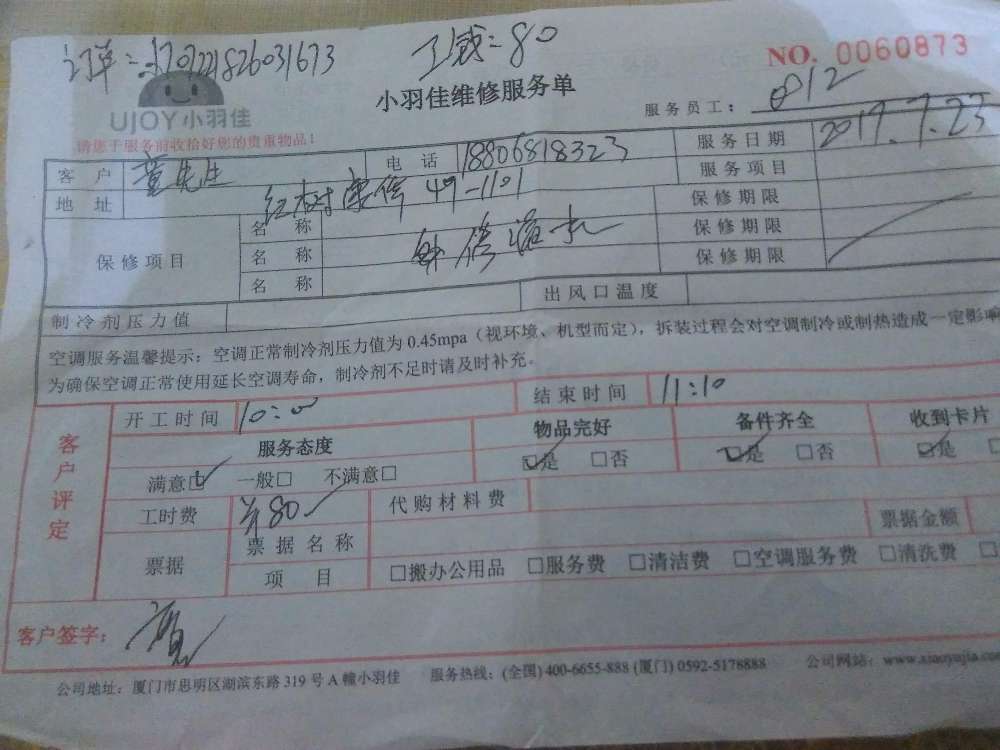 订单:170721826031673
工钱:80
NO. 0060873
UJOY小羽佳
小羽佳维修服务单
服务员工: 0812
请您于服务前收拾好您的贵重物品!
客户 童先生 电话 18806818323 服务日期 2017.7.23
地址 49-1101 服务项目
保修项目 名称 保修期限
名称 保修期限
名称 保修期限
制冷剂压力值 出风口温度
空调服务温馨提示:空调正常制冷剂压力值为 0.45mpa(视环境、机型而定),拆装过程会对空调制冷或制热造成一定影响
为确保空调正常使用延长空调寿命,制冷剂不足时请及时补充。
客户评定 开工时间 10:00 结束时间 11:10
服务态度 物品完好 备件齐全 收到卡片
满意☑ 一般□ 不满意□ ☑是 □否 ☑是 □否 ☑是
工时费 ¥80 代购材料费
票据 票据名称 票据金额
项目 □搬办公用品 □服务费 □清洁费 □空调服务费 □清洗费
客户签字:
公司地址:厦门市思明区湖滨东路 319 号 A 幢小羽佳 服务热线:(全国) 400-6655-888 (厦门) 0592-5178888 公司网站:www.xiaoyujia.com